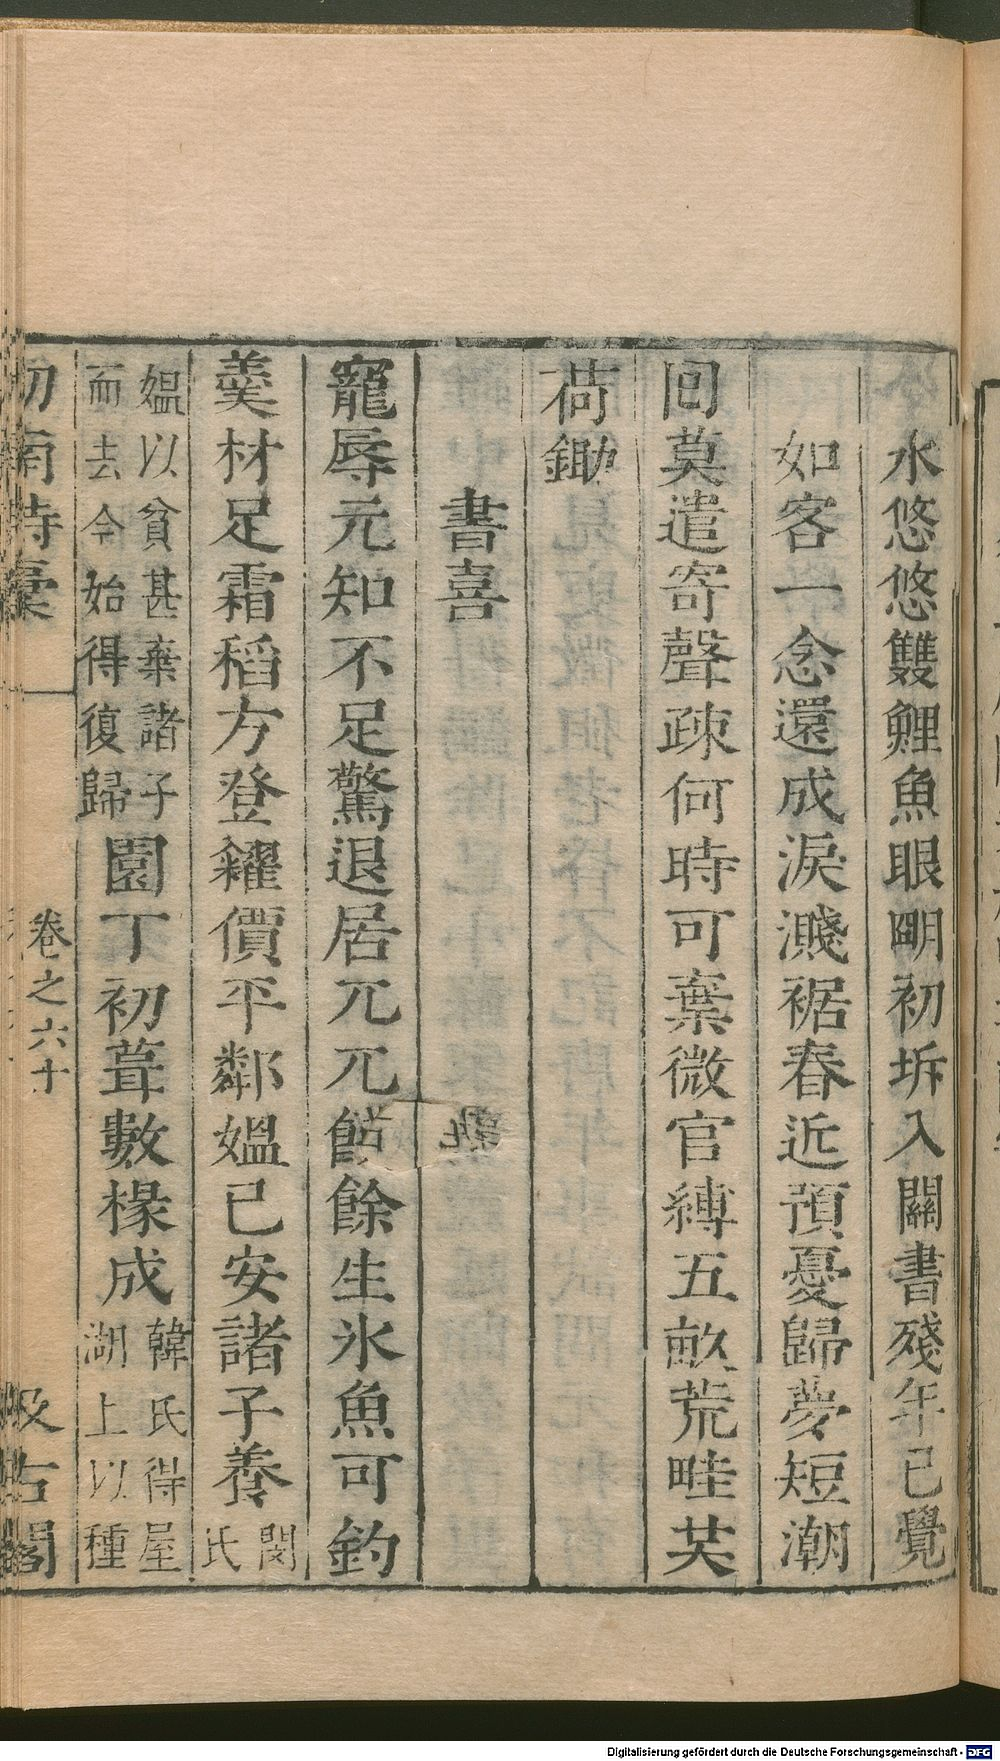 水悠悠雙鯉魚眼明初坼入關書殘年已覺
如客一念還成淚濺裾春近預憂歸夢短潮
回莫遣寄聲疎何時可棄微官縛五畝荒畦芺
荷鋤
書喜
寵辱元知不足驚退居兀兀餞餘生氷魚可釣
羮材足霜稻方登糴價平鄰媼已安諸子養閔氏
媼以貧甚棄諸子而去今始得復歸園丁初葺數椽成韓氏得屋湖上以種
劒南詩稾
卷之六十
汲古閣
Digitalisierung gefördert durch die Deutsche Forschungsgemeinschaft - DFG